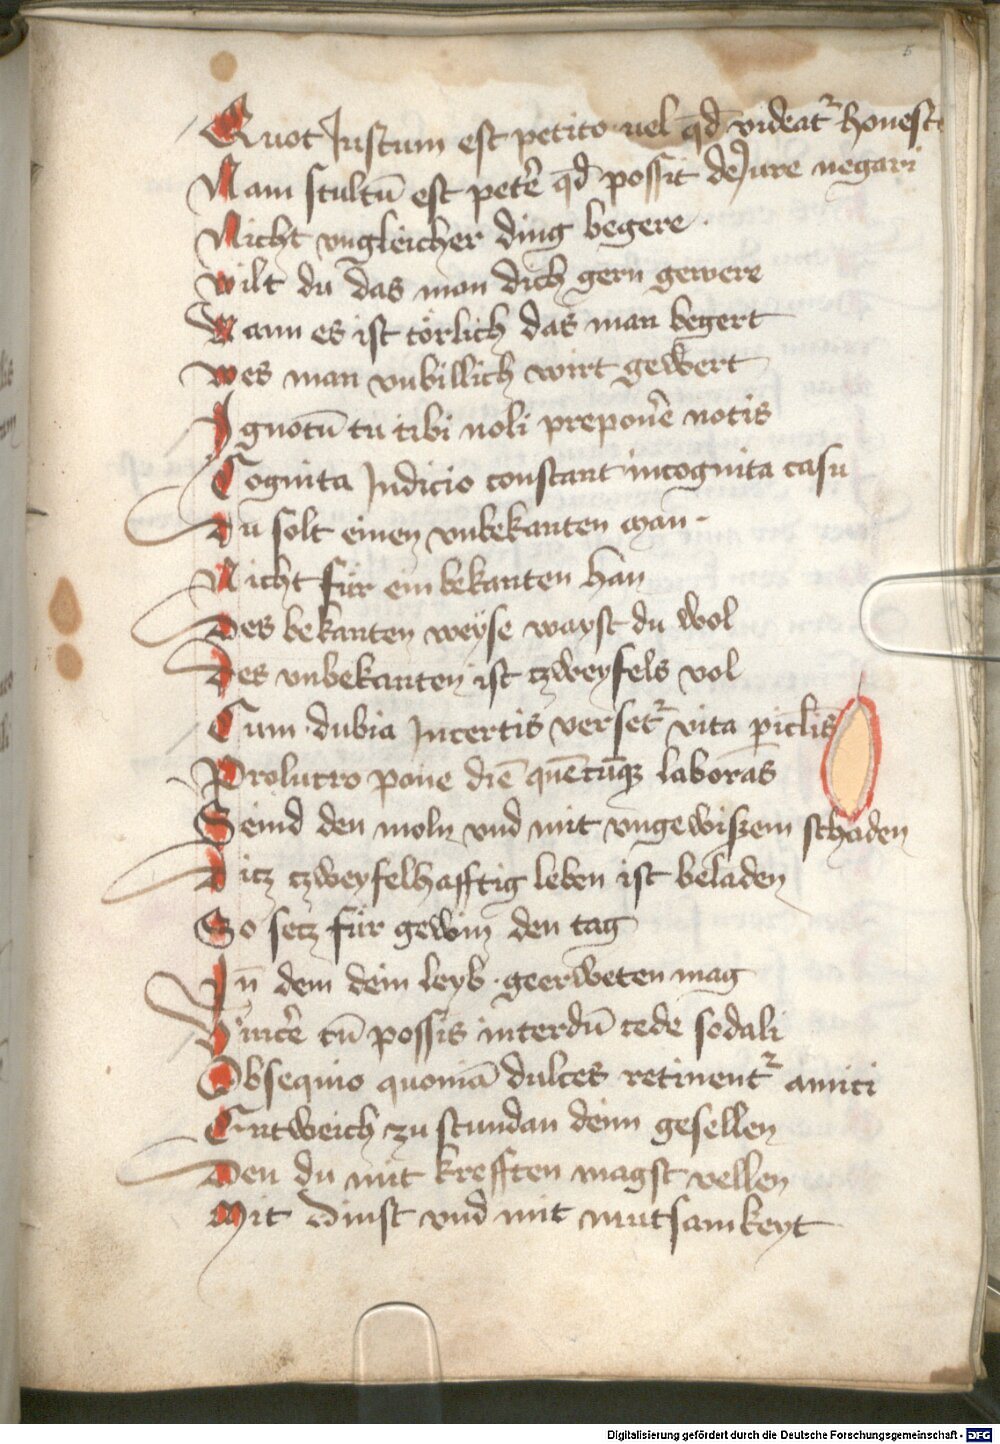 5
Quot Justum est petito uel qd̄ videat᷑ honest
Nam stultū est petē qd̄ possit deJure negari
Nicht vngleicher ding begere
wilt du das man dich gern gewere
Wann es ist törlich das man begert
wes man vnbillich wirt gewert
Ignotū tu tibi noli preponē notis
Cognita Judicio constant incognita casu
Du solt einen vnbekanten man
Nicht für ein bekanten han
Des bekanten weyse wayst du wol
Des vnbekanten ist czweyfels vol
Cum dubia Jncertis verset᷑ vita piclis
Prolucro pone diē quēcūqꝫ laboras
Seind den moln vnd mit vngewiszem schaden
Dicz czweyfelhafftig leben ist beladen
So secz für gewin den tag
Jn̄ dem dein leyb geerbeten mag
Vincē cū possis interdū cede sodali
Obsequio quoniā dulces retinent᷑ amici
Entweich zu stundan deim gesellen
Den du mit krefften magst vellen
Mit dinst vnd mit mutsamkeyt
Digitalisierung gefördert durch die Deutsche Forschungsgemeinschaft - DFG